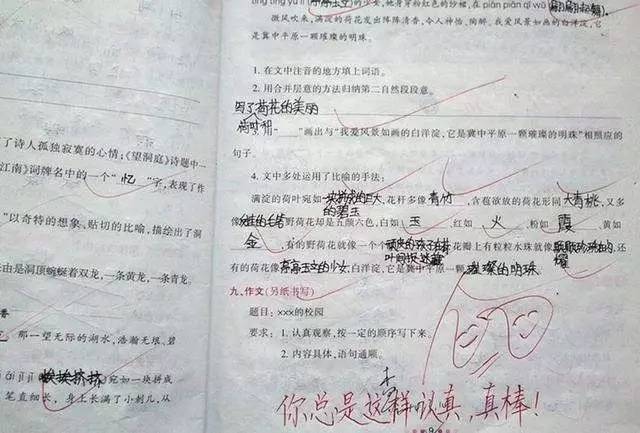 了诗人孤独寂寞的心情；《望洞庭》诗题中一
江南》词牌名中的一个“忆”字，表现了作
“以奇特的想象、贴切的比喻，描绘出了洞
由是洞顶蜿蜒着双龙，一条黄龙，一条青龙。
那一望无际的湖水，浩瀚无垠、碧
挨挨挤挤 宛如一块拼成
笔直细长，身上长满了小刺儿，从
的少女，她身穿粉红色的纱裙，在 piān piān qǐ wǔ
微风吹来，满淀的荷花发出阵阵清香，令人神怡、陶醉。我爱风景如画的白洋淀，它
是冀中平原一颗璀璨的明珠。
1. 在文中注音的地方填上词语。
2. 用合并层意的方法归纳第二自然段段意。
荷花的美丽
画出与“我爱风景如画的白洋淀，它是冀中平原一颗璀璨的明珠”相照应的
句子。
4. 文中多处运用了比喻的手法：
满淀的荷叶宛如 的碧玉，花秆多像 青竹，含苞欲放的荷花形同 大寿桃，又多
像 野荷花却是五颜六色，白如 玉、红如 火、粉如 霞、黄如
金，有的野荷花就像一个个 花瓣上有粒粒水珠就像 还
有的荷花像 亭亭玉立的少女，白洋淀，它是冀中平原一颗 璀璨的明珠。
九、作文(另纸书写)
题目：xxx的校园
要求：1. 认真观察，按一定的顺序写下来。
2. 内容具体，语句通顺。
你总是这样不认真，真棒！
9